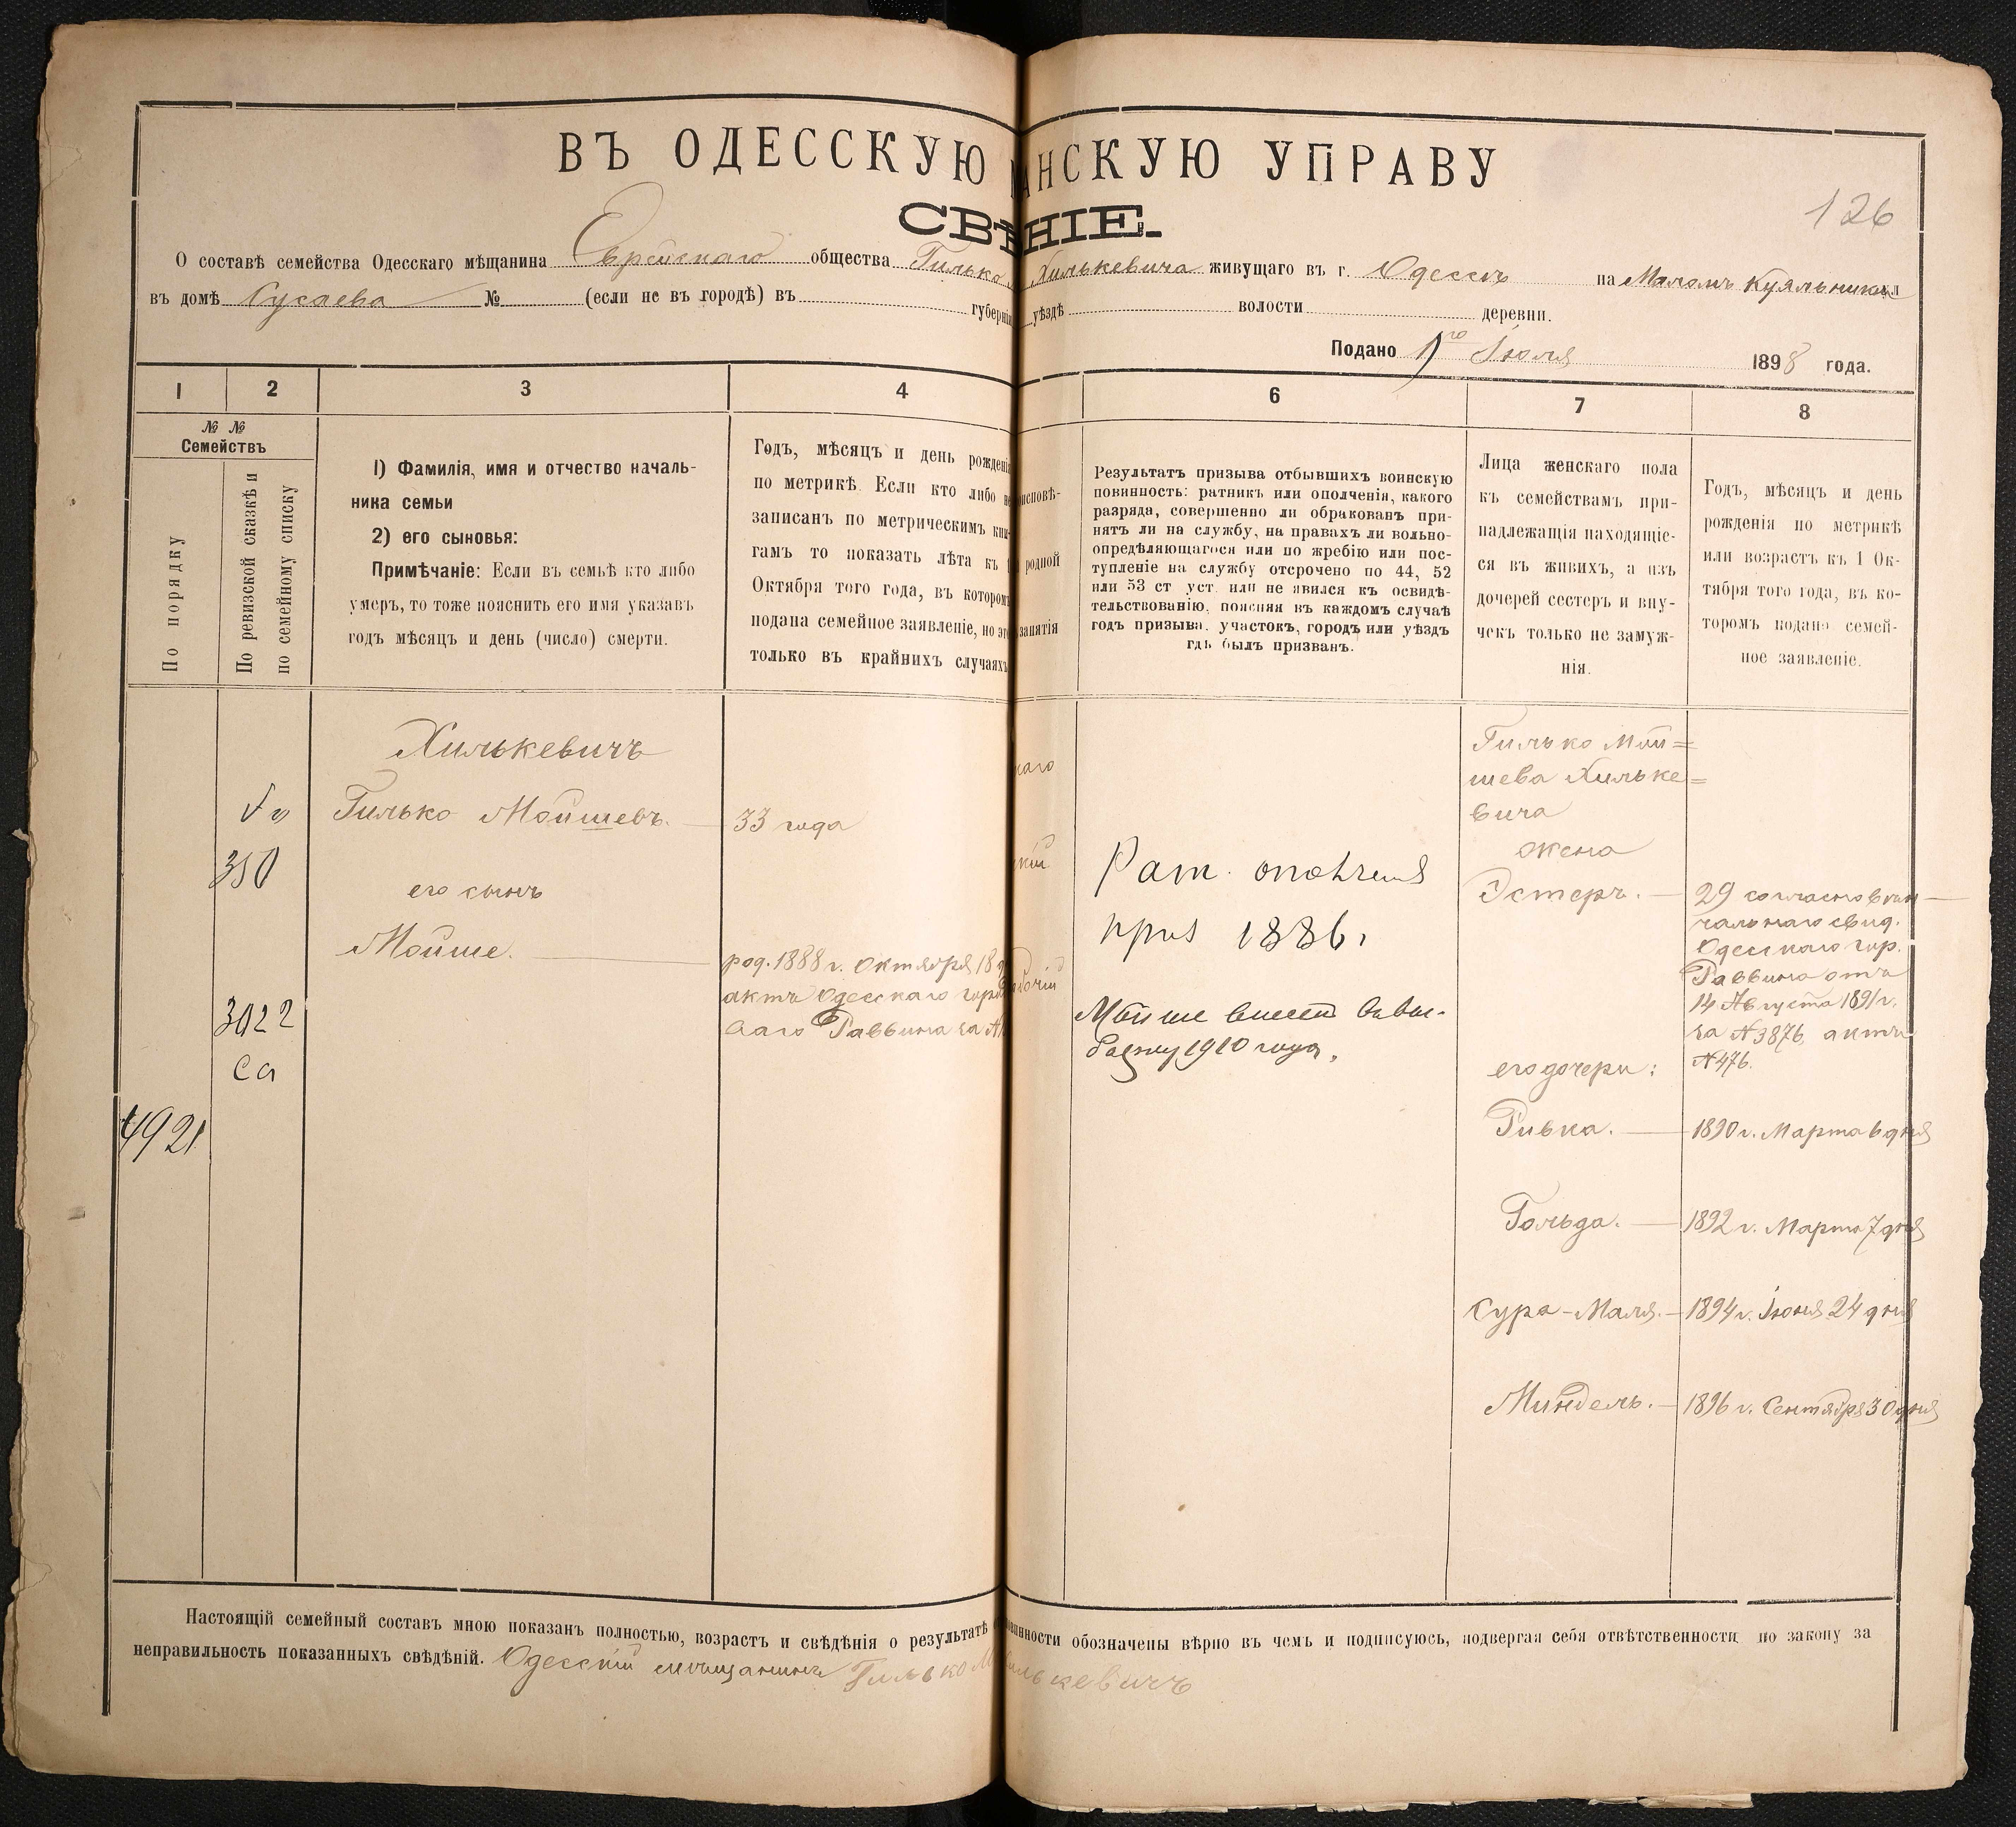 ВЪ ОДЕССКУЮ АНСКУЮ УПРАВУ
СВѢ НІЕ.
126
О составѣ семейства Одесскаго мѣщанина Еврейскаго общества Гилько Хилькевича живущаго въ г. Одессѣ на Маломъ Куяльникѣ ул
въ домѣ Гусаева № (если не въ городѣ) въ губерніи уѣздѣ волости деревни.
Подано 1го Іюля 1898 года.
1 2 3 4 6 7 8
№ №
Семействъ
По порядку
По ревизской сказкѣ и
по семейному списку
1) Фамилія, имя и отчество началь-
ника семьи
2) его сыновья:
Примѣчаніе: Если въ семьѣ кто либо
умеръ, то тоже пояснить его имя указавъ
годъ мѣсяцъ и день (число) смерти.
Годъ, мѣсяцъ и день рожденія
по метрикѣ. Если кто либо не
записанъ по метрическимъ кни-
гамъ то показать лѣта къ 1
Октября того года, въ которомъ
подана семейное заявленіе, но это
только въ крайнихъ случаяхъ
исповѣ-
родной
занятія
Результатъ призыва отбывшихъ воинскую
повинность: ратникъ или ополченія, какого
разряда, совершенно ли обракованъ при-
нятъ ли на службу, на правахъ ли вольно-
опредѣляющагося или по жребію или пос-
тупленіе на службу отсрочено по 44, 52
или 53 ст уст. или не явился къ освидѣ-
тельствованію, поясняя въ каждомъ случаѣ
годъ призыва, участокъ, городъ или уѣздъ
гдѣ былъ призванъ.
Лица женскаго пола
къ семействамъ при-
надлежащія находящіе-
ся въ живихъ, а изъ
дочерей сестеръ и вну-
чекъ только не замуж-
нія.
Годъ, мѣсяцъ и день
рожденія по метрикѣ
или возрастъ къ 1 Ок-
тября того года, въ ко-
торомъ подано семей-
ное заявленіе.
4921
350
3022
са
Хилькевичъ
Гилько Мойшевъ. 33 года
его сынъ
Мойше.
род. 1888 г. Октября 18
актъ Одесскаго горо
Раввина за №
каго
кій
очій
Рат. ополченія
приз 1886.
Мойше внесен в
1910 года.
Гилько Мой=
шева Хильке=
вича
жена
Эстеръ.
29 согласно вѣн-
чальнаго свид.
Одесскаго гор.
Раввина отъ
14 Августа 1891 г.
за №3876, актъ
№476.
его дочери:
Ривка. 1890 г. Марта 6 дня
Гольда. 1892 г. Марта 7 дня
Сура-Маля. 1894 г. Іюня 24 дня
Миндель. 1896 г. Сентября 30 дня
Настоящій семейный составъ мною показанъ полностью, возрастъ и свѣдѣнія о результатѣ инности обозначены вѣрно въ чемъ и подписуюсь, подвергая себя отвѣтственности по закону за
неправильность показанныхъ свѣдѣній. Одесскій мѣщанинъ Гилько М илькевичъ